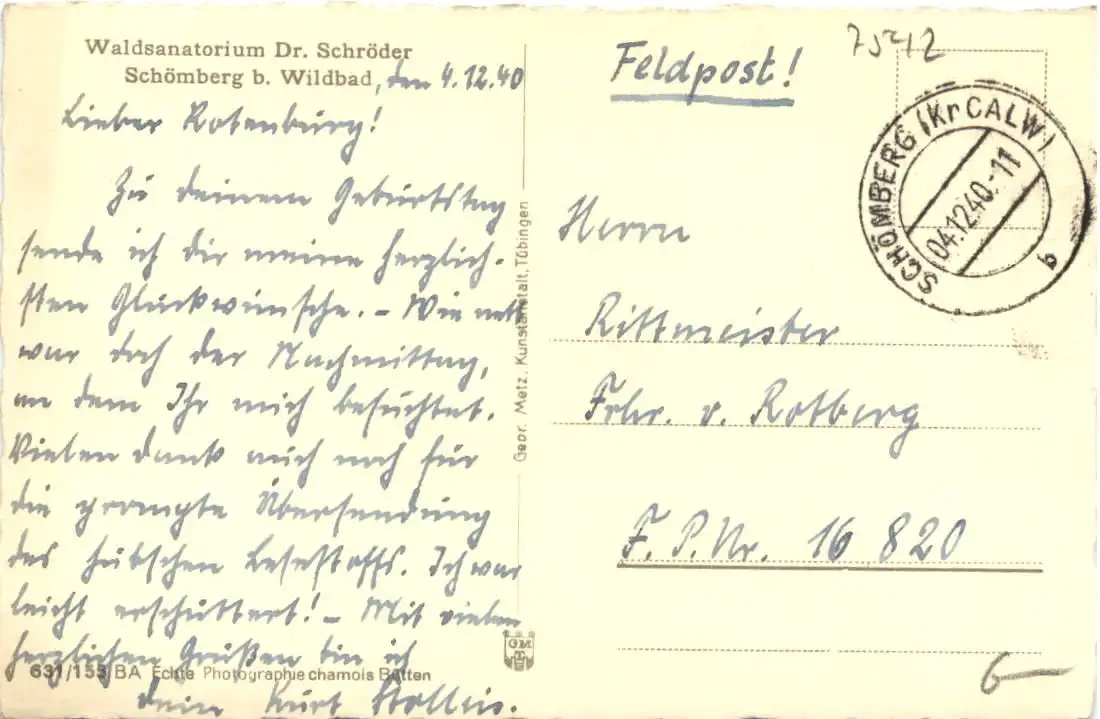 Waldsanatorium Dr. Schröder
Schömberg b. Wildbad, den 4.12.40
Lieber Rotenburg!
Zu deinem Geburtstag
sende ich dir meine herzlich-
sten Glückwünsche. – Wie nett
war doch der Nachmittag,
an dem Ihr mich besuchtet.
Vielen Dank auch noch für
die prompte Übersendung
des hübschen Lesestoffs. Ich war
leicht erschüttert! – Mit vielen
herzlichen Grüßen bin ich
dein Kurt
631/153 BA Echte Photographie chamois Bütten
Geor. Metz, Kunstanstalt, Tübingen
GMT
Feldpost!
75212
SCHÖMBERG (Kr CALW)
04.12.40.-11
b
Herrn
Rittmeister
Frhr. v. Rotberg
F.P.Nr. 16 820
6—